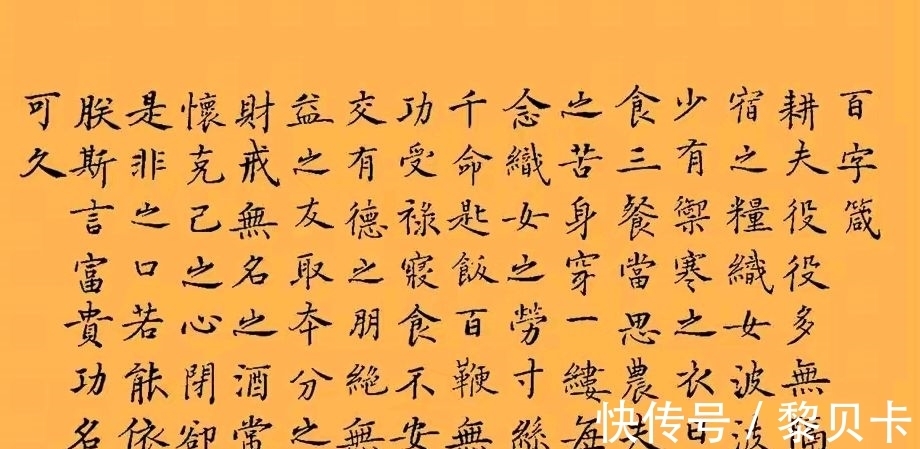 百字箴
耕夫役役多無隔
宿之糧織女波波
少有禦寒之衣日
食三餐當思農夫
之苦身穿一縷每
念織女之勞寸絲
千命匙飯百鞭無
功受祿寢食不安
交有德之朋絕無
益之友取夲分之
財戒無名之酒常
懷克己之心閉卻
是非之口若能依
朕斯言富貴功名
可久
快传号 / 黎贝卡